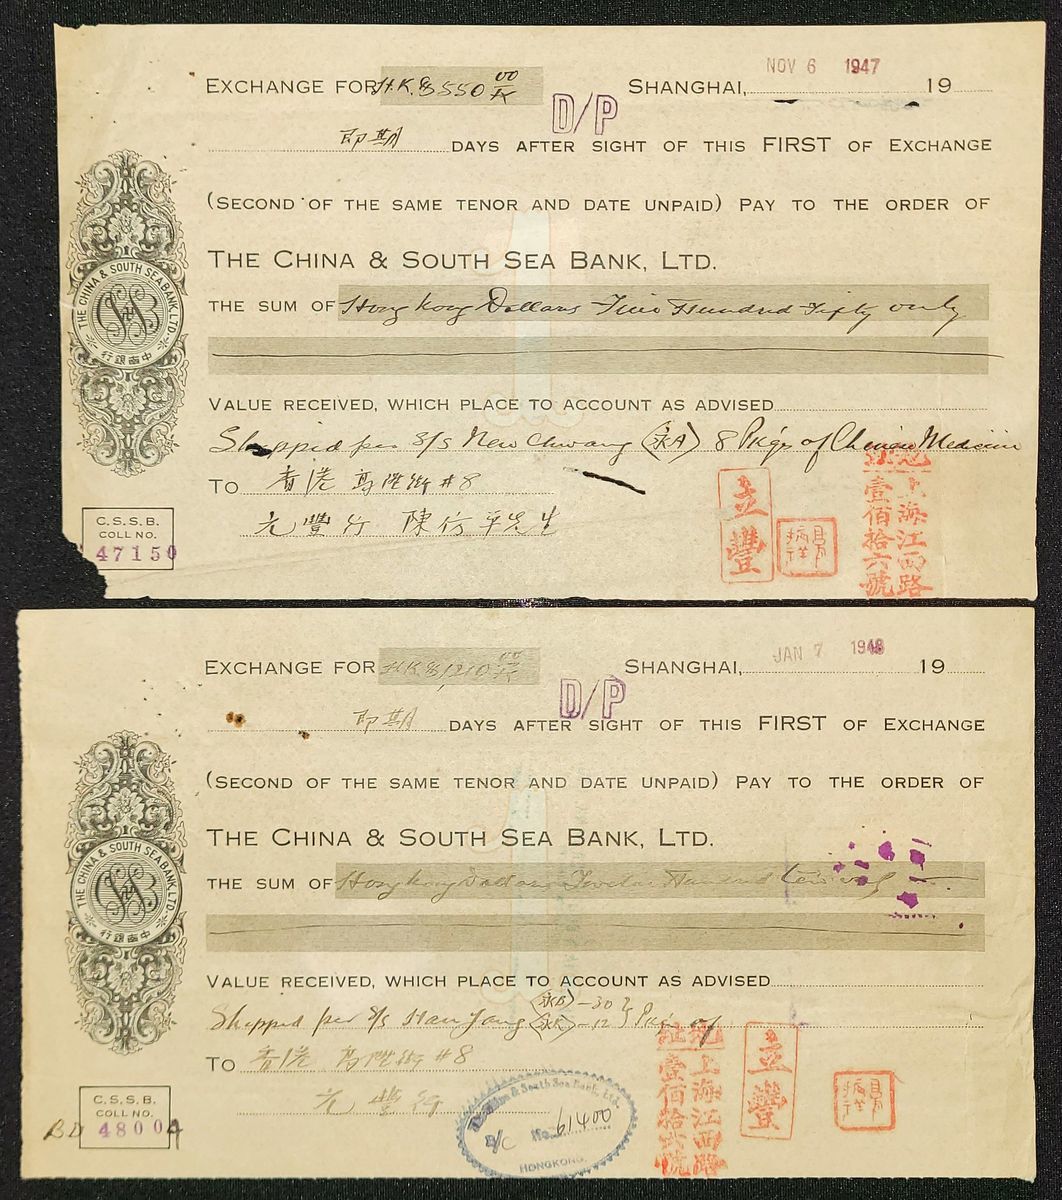 EXCHANGE FOR H.K.$550 00/xx SHANGHAI, NOV 6 1947 19
D/P
即期 DAYS AFTER SIGHT OF THIS FIRST OF EXCHANGE
(SECOND OF THE SAME TENOR AND DATE UNPAID) PAY TO THE ORDER OF
THE CHINA & SOUTH SEA BANK, LTD.
THE SUM OF Hong Kong Dollars Five Hundred Fifty only
THE CHINA & SOUTH SEA BANK, LTD.
行銀南中
VALUE RECEIVED, WHICH PLACE TO ACCOUNT AS ADVISED
Shipped per S/S New Chwang (永A) 8 Pkgs of Chinese Medicine
TO 香港 高陞街 #8
元豐行 陳 先生
C.S.S.B.
COLL NO.
47150
立豐
上海江西路
壹佰拾六號
EXCHANGE FOR H.K.$1,210 00/xx SHANGHAI, JAN 7 1948 19
D/P
即期 DAYS AFTER SIGHT OF THIS FIRST OF EXCHANGE
(SECOND OF THE SAME TENOR AND DATE UNPAID) PAY TO THE ORDER OF
THE CHINA & SOUTH SEA BANK, LTD.
THE SUM OF Hong Kong Dollars Twelve Hundred ten only
THE CHINA & SOUTH SEA BANK, LTD.
行銀南中
VALUE RECEIVED, WHICH PLACE TO ACCOUNT AS ADVISED
Shipped per S/S Han Yang -30 -12 Pkgs of
TO 香港 高陞街 #8
元豐行
C.S.S.B.
COLL NO.
4800A
The China & South Sea Bank, Ltd.
B/C No. 61400
HONGKONG.
上海江西路
壹佰拾六號
立豐